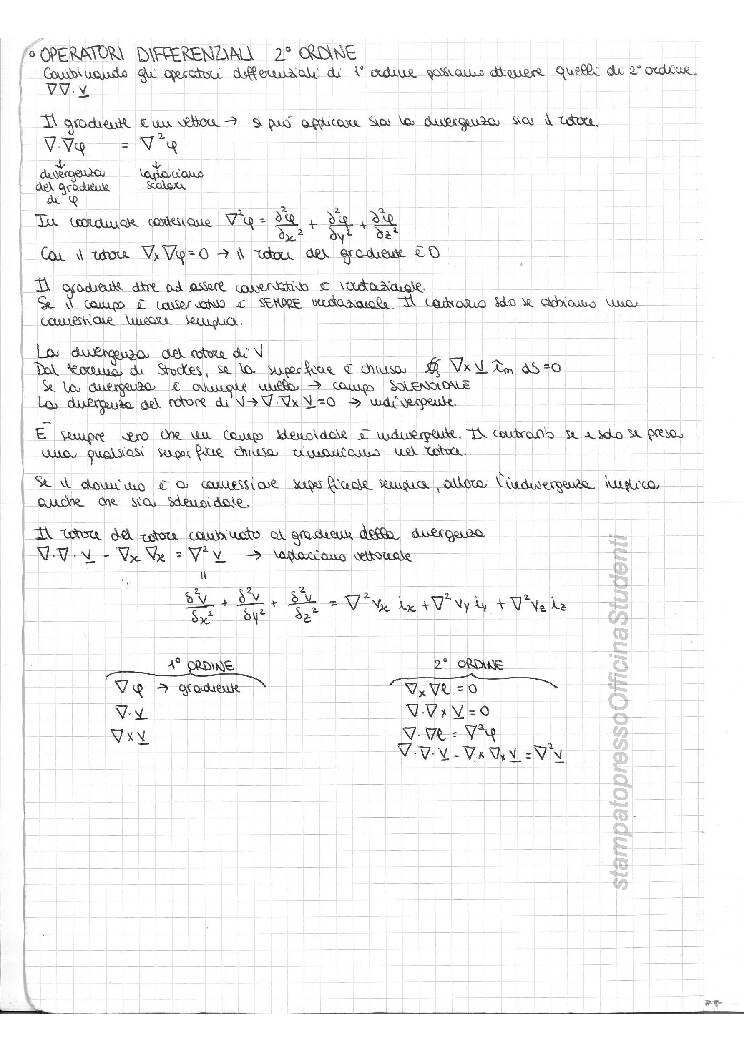 ° OPERATORI DIFFERENZIALI 2° ORDINE
Combinando gli operatori differenziali di 1° ordine possiamo ottenere quelli di 2° ordine.
∇∇·v
Il gradiente è un vettore → si può applicare sia la divergenza sia il rotore.
∇·∇φ = ∇²φ
↓ ↓
divergenza laplaciano
del gradiente scalare
di φ
In coordinate cartesiane ∇²φ = ∂²φ/∂x² + ∂²φ/∂y² + ∂²φ/∂z²
Con il rotore ∇x ∇φ = 0 → il rotore del gradiente è 0
Il gradiente oltre ad essere conservativo è irrotazionale.
Se il campo è conservativo è SEMPRE irrotazionale. Il contrario solo se abbiamo una
connessione lineare semplice.
La divergenza del rotore di V
Dal teorema di Stockes, se la superficie è chiusa ∯ ∇x v in dS = 0
Se la divergenza è ovunque nulla → campo SOLENOIDALE
La divergenza del rotore di V → ∇·∇x v = 0 → indivergente.
È sempre vero che un campo solenoidale è indivergente. Il contrario se e solo se presa
una qualsiasi superficie chiusa rimaniamo nel rotore.
Se il dominio è a connessione superficiale semplice, allora l'indivergenza implica
anche che sia solenoidale.
Il rotore del rotore combinato al gradiente della divergenza
∇·∇·v - ∇x ∇x = ∇²v → laplaciano vettoriale
=
δ²v/δx² + δ²v/δy² + δ²v/δz² = ∇²vx ix + ∇²vy iy + ∇²vz iz
1° ORDINE
∇φ → gradiente
∇·v
∇x v
2° ORDINE
∇x ∇φ = 0
∇·∇x v = 0
∇·∇φ = ∇²φ
∇·∇·v - ∇x ∇x v = ∇²v
stampatopressoOfficinaStudenti